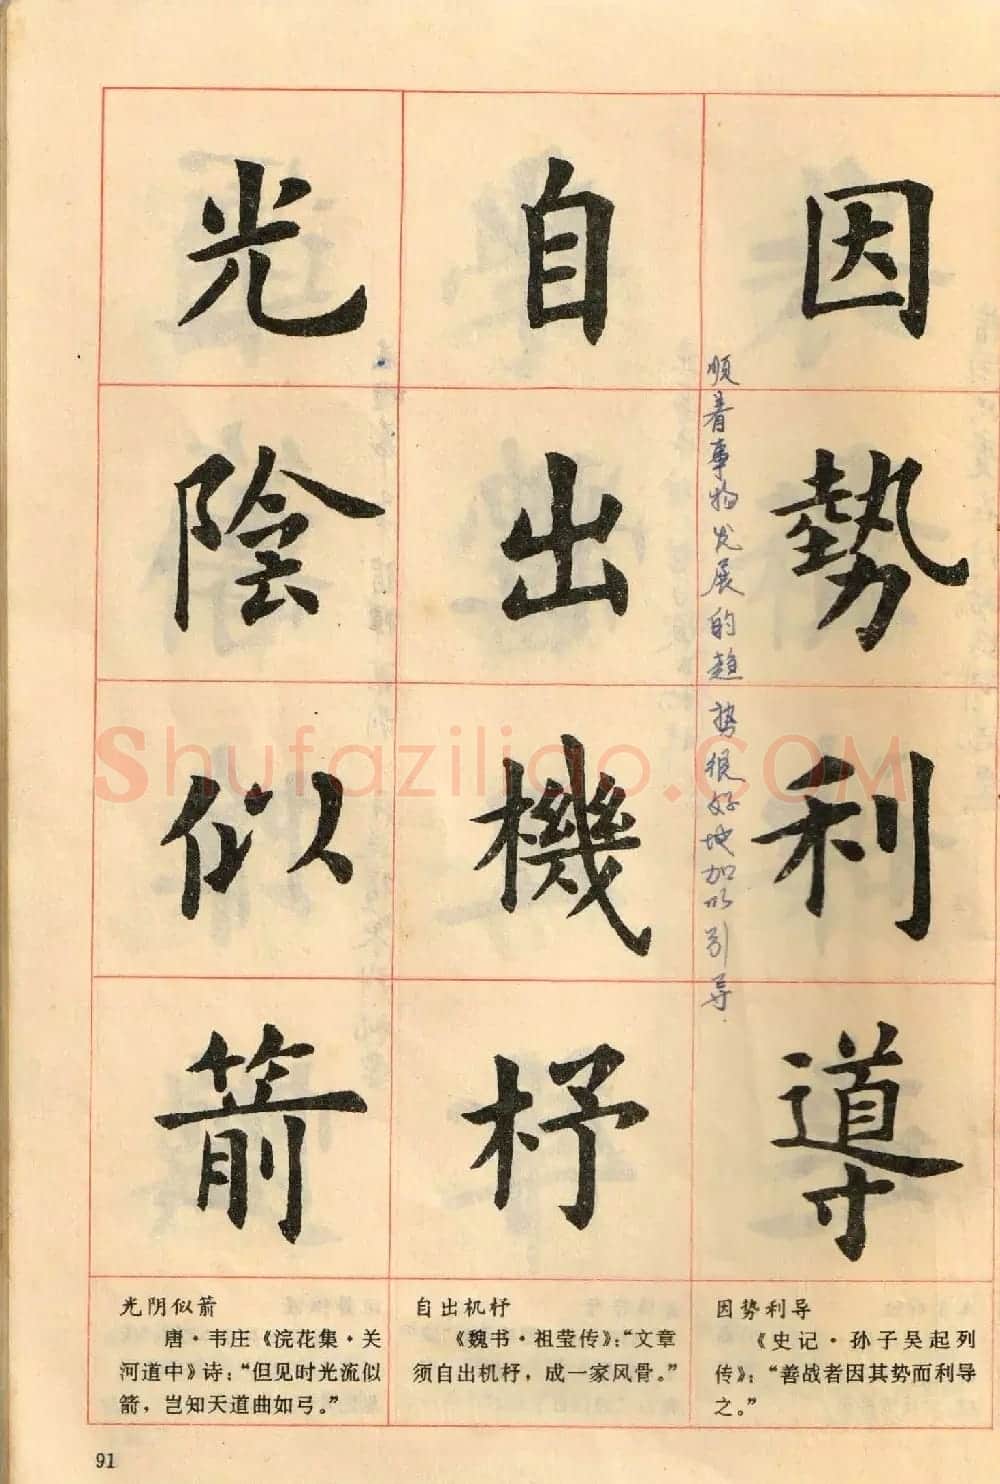 因勢利導
自出機杼
光陰似箭
顺着事物发展的趋势很好地加以引导
Shufaziliao.COM
光阴似箭
唐·韦庄《浣花集·关
河道中》诗:“但见时光流似
箭，岂知天道曲如弓。”
自出机杼
《魏书·祖莹传》:“文章
须自出机杼，成一家风骨。”
因势利导
《史记·孙子吴起列
传》:“善战者因其势而利导
之。”
91